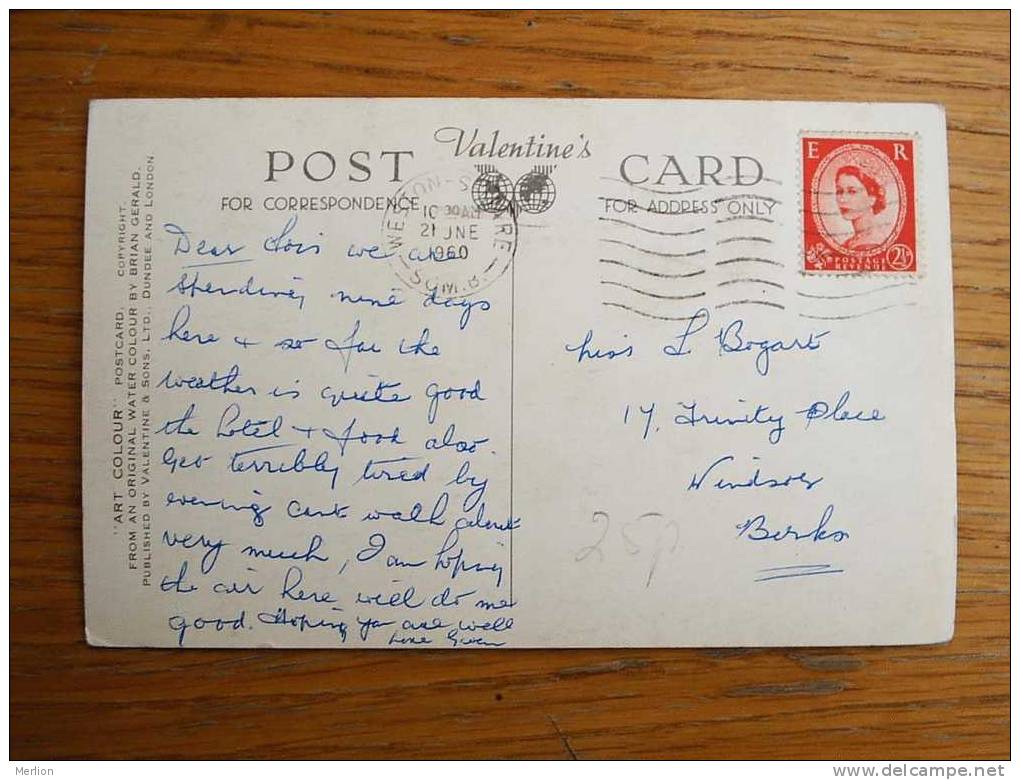 Valentine's
POST CARD
FOR CORRESPONDENCE
FOR ADDRESS ONLY
"ART COLOUR" POSTCARD. COPYRIGHT.
FROM AN ORIGINAL WATER COLOUR BY BRIAN GERALD.
PUBLISHED BY VALENTINE & SONS, LTD., DUNDEE AND LONDON
WESTON-S
10 30 AM
21 JNE
1960
SOM.
E R
POSTAGE
REVENUE
2½D
Dear Lois we are
spending nine days
here & so far the
weather is quite good
the hotel & food also.
Get terribly tired by
evening cant walk about
very much, I am hoping
the air here will do me
good. Hoping you are well
Love Gwen
Miss L Bogart
17, Trinity Place
Windsor
Berks
25p
Merlion
www.delcampe.net